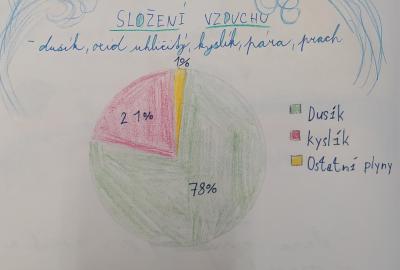 SLOŽENÍ VZDUCHU
- dusík, oxid uhličitý, kyslík, pára, prach
1%
21%
78%
Dusík
kyslík
Ostatní plyny